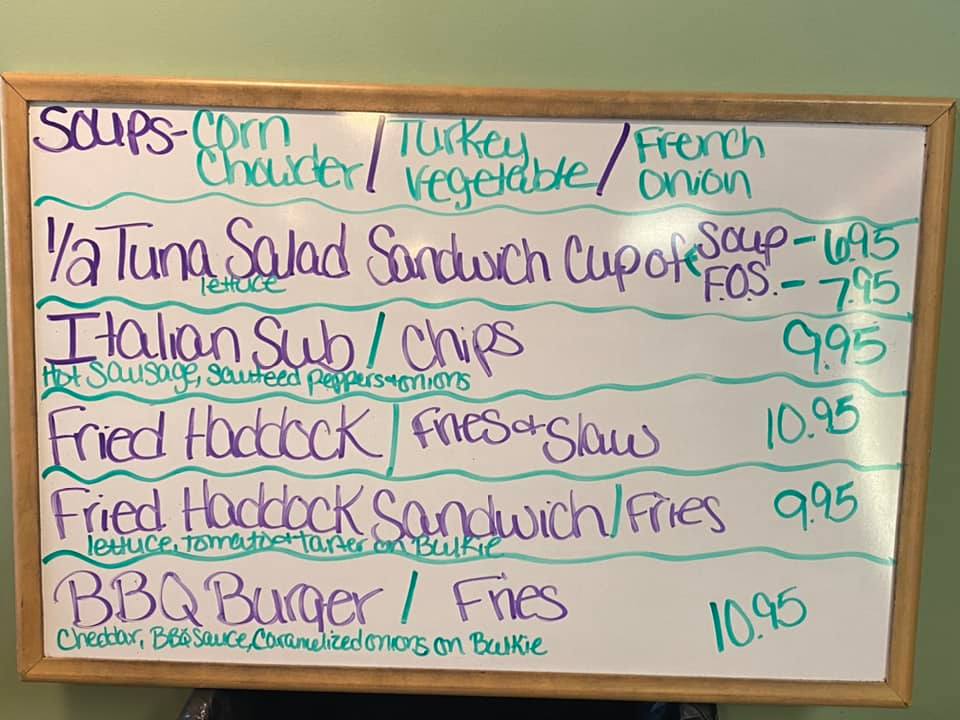 Soups- Corn Chowder / Turkey vegetable / French onion
1/2 Tuna Salad Sandwich Cup of Soup - 6.95
lettuce F.O.S. - 7.95
Italian Sub / Chips 9.95
Hot Sausage, sauteed peppers + onions
Fried Haddock / Fries + Slaw 10.95
Fried Haddock Sandwich / Fries 9.95
lettuce, tomato + tarter on Bulkie
BBQ Burger / Fries 10.95
Cheddar, BBQ Sauce, Caramelized onions on Bulkie